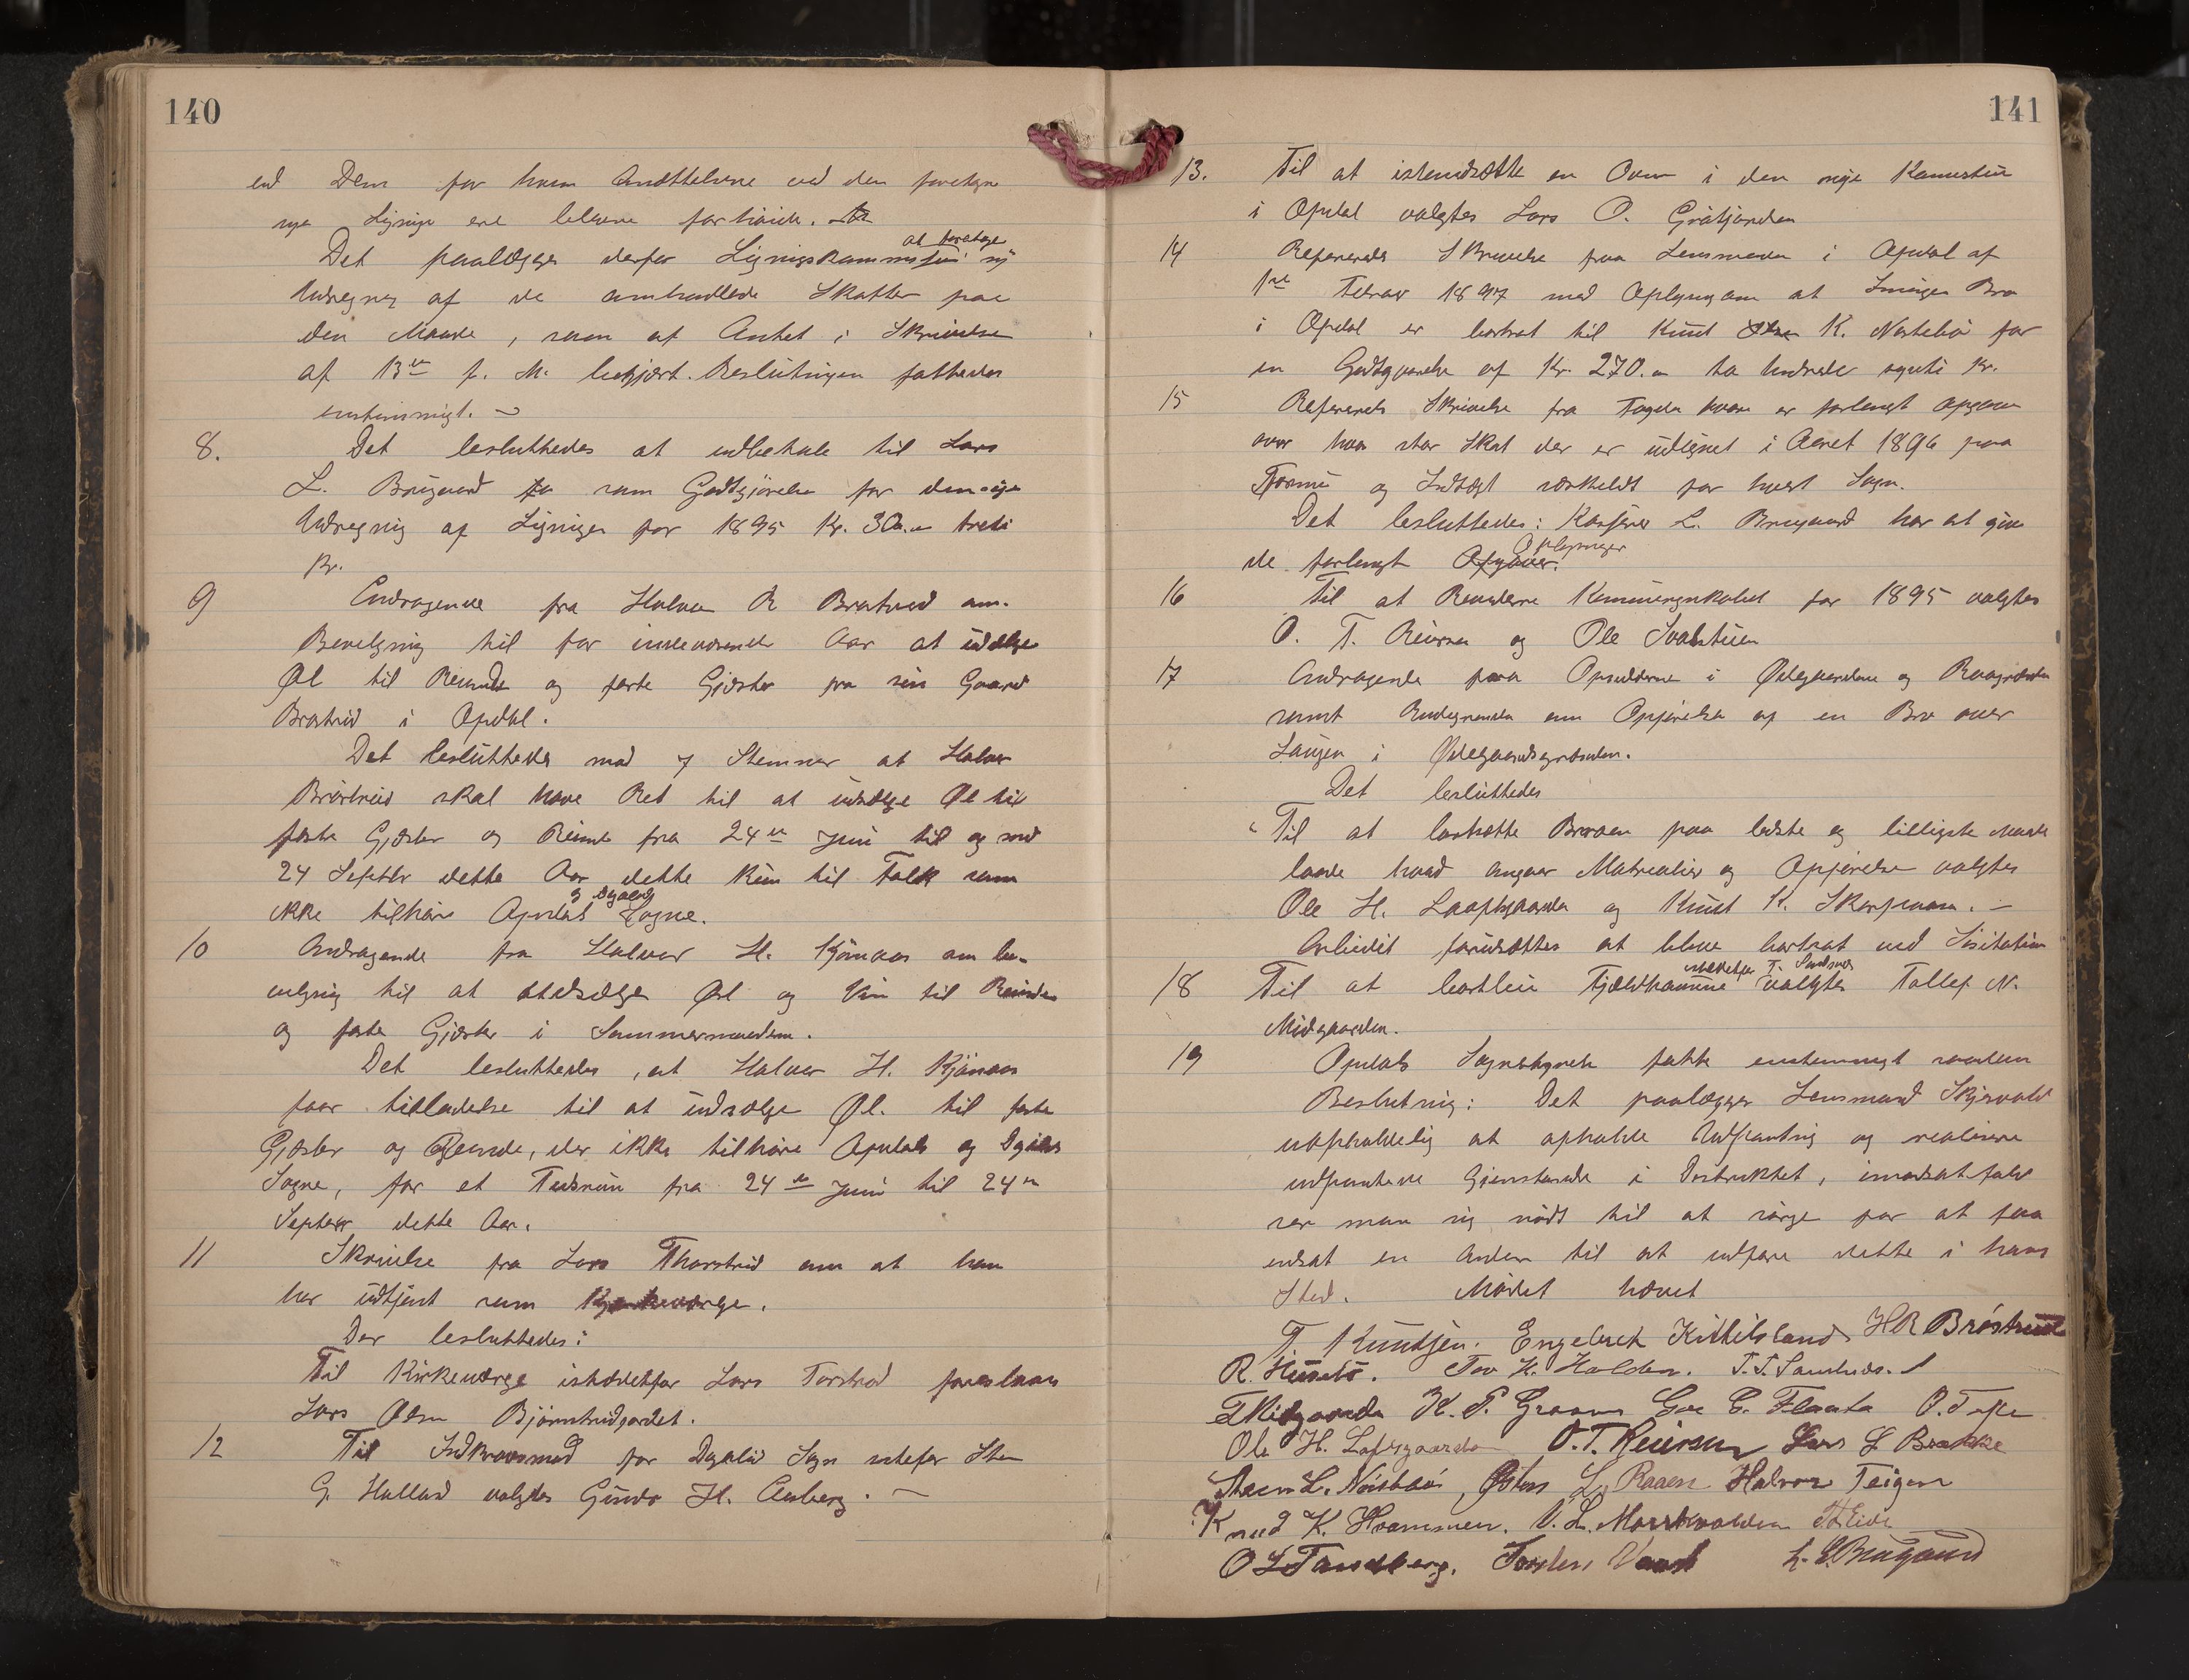 140
end Dem for hvem Ansættelsene ved den foretagne
nye Ligning ere blevne forhøiede.
Det paalægges derfor Ligningskommissionen at foretage ny
Udregning af de omhandlede Skatter paa
den Maade, som af Amtet i Skrivelse
af 13de f. M. begjært. Beslutningen fattedes
enstemmigt.
8. Det besluttedes at udbetale til Lars
L. Brugaard som Godtgjørelse for den nye
Udregning af Ligningen for 1895 Kr. 30.00 treti
Kr.
9 Andragende fra Halvor R Brøstrud om
Bevilgning til for indeværende Aar at udsælge
Øl til Reisende og faste Gjæster fra sin Gaard
Brøstrud i Opdal.
Det besluttedes med 7 Stemmer at Halvor
Brøstrud skal have Ret til at udsælge Øl til
faste Gjæster og Reisende fra 24de Juni til og med
24 Septbr dette Aar dette kun til Folk som
ikke tilhøre Opdals og Dagalis Sogne.
10 Andragende fra Halvor H. Kjønaas om be-
vilgning til at udsælge Øl og Vin til Reisende
og faste Gjæster i Sommermaanederne.
Det besluttedes, at Halvor H. Kjønaas
faar tilladelse til at udsælge Øl. til faste
Gjæster og Reisende, der ikke tilhøre Opdals og Dagalis
Sogne, for et Tidsrum fra 24de Juni til 24de
Septbr dette Aar.
11 Skrivelse fra Lars Thorstrud om at han
har udtjent som Kirkeværge.
Der besluttedes:
Til Kirkeværge istedetfor Lars Torstrud foreslaaes
Lars Olsen Bjørnstrudjordet.
12 Til Indkravsmand for Dagalid Sogn istefor Sten
G. Halland valgtes Gunder H. Aasberg.
141
13. Til at istandsætte en Oven i den nye Kommestue
i Opdal valgtes Lars O. Gråtjorden
14 Refereredes Skrivelse fra Lensmanden i Opdal af
1ste Februar 1897 med Oplysning om at Bro
i Opdal er bortsat til Knud K. Nørstebø for
en Godtgjørelse af Kr. 270.00 to hundrede sytti Kr.
15 Refereredes Skrivelse fra Fogden hvori er forlangt opgave
over hvor stor Skat der er udlignet i Aaret 1896 paa
Formue og Indtægt særskildt for hvert Sogn.
Det besluttedes: Kasserer L. Brugaard har at give
de forlangte Opgaver. Oplysninger
16 Til at Revidere Kommuneregnskabet for 1895 valgtes
O. T. Reiersen og Ole Svartuen
17 Andragende fra Opsidderne i Ødegaardene og Raagrenden
samt om Opførelse af en Bro over
Laagen i Ødegaardsgrenden.
Det besluttedes
"Til at bortsætte Broen paa bedste og billigste Maade
baade hvad angaar Materialier og Opførelse valgtes
Ole H. Loftsgaarden og Knud K. Skarpmoen. –
Arbeidet forudsættes at blive bortsat ved Lisitation
18 Til at bortleie Fjeldhavnene istedetfor T. Sandsnes valgtes Tollef N.
Midgaarden.
19 Opdals Sognestyrede fatte enstemmigt saadan
Beslutning: Det paalægges Lensmand Skjervold
uopholdelig at opholde Udpantning og realisere
udpantede Gjenstande i Distriktet, imodsatfald
ser man sig nødt til at sørge for at faa
indsat en Anden til at udføre dette i hans
Sted. Mødet hævet
T. Knudsen. Engebret Kittilsland HR Brøstrud
R. Huusebø. Tov K. Halden. T. T. Sandsnes.
T Midgaarden K. P. Graanes E. Flaata O. Tufte
Ole H. Loftsgaarden O. T. Reiersen Lars L Brække
Steen L. Nørstebø, Østen L. Raaen Halvor Teigen
Knud K. Hrammen. O. L. Mørkvolden Eide
O L Tandberg. Torsten Vaast L. L. Brugaard